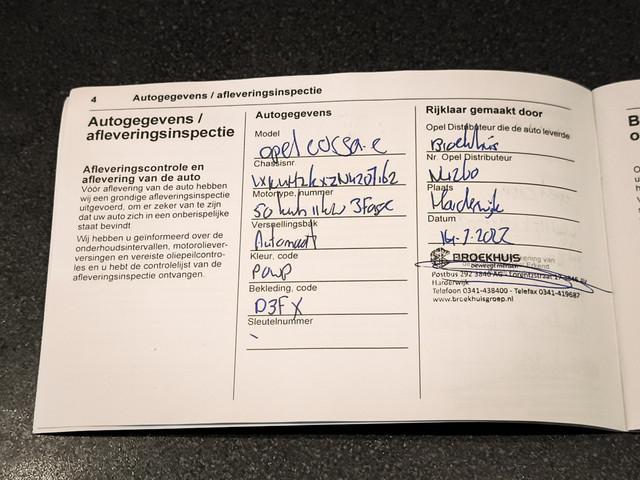 4 Autogegevens / afleveringsinspectie
Autogegevens /
afleveringsinspectie
Afleveringscontrole en
aflevering van de auto
Vóór aflevering van de auto hebben
wij een grondige afleveringsinspectie
uitgevoerd, om er zeker van te zijn
dat uw auto zich in een onberispelijke
staat bevindt.
Wij hebben u geïnformeerd over de
onderhoudsintervallen, motorolie-
verversingen en vereiste oliepeilcontro-
les en u hebt de controlelijst van de
afleveringsinspectie ontvangen.
Autogegevens
Model
opel corsa-e
Chassisnr.
Motortype, nummer
50 kwh 11kw 3Fase
Versnellingsbak
Automaat
Kleur, code
P0WP
Bekleding, code
D3FX
Sleutelnummer
Rijklaar gemaakt door
Opel Distributeur die de auto leverde
Broekhuis
Nr. Opel Distributeur
NL260
Plaats
Harderwijk
Datum
14-7-2022
BROEKHUIS
beweegt mensen
Postbus 292 3840 AG - Lorentzstraat 17
Harderwijk
Telefoon 0341-438400 - Telefax 0341-419687
www.broekhuisgroep.nl